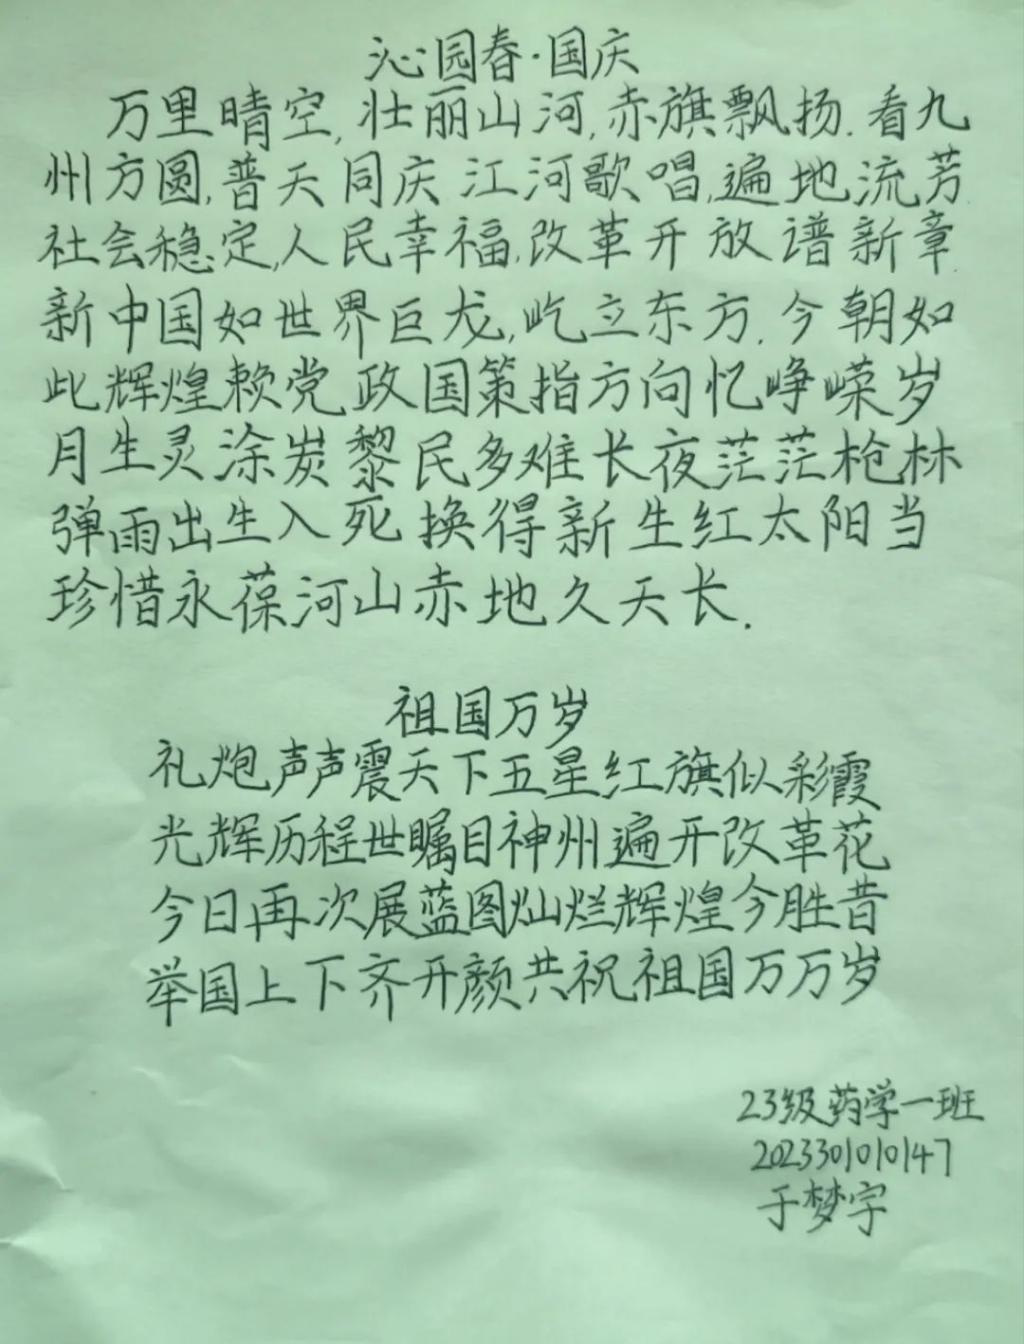 沁园春·国庆
万里晴空,壮丽山河,赤旗飘扬.看九
州方圆,普天同庆江河歌唱,遍地流芳
社会稳定,人民幸福,改革开放谱新章.
新中国如世界巨龙,屹立东方.今朝如
此辉煌赖党政国策指方向忆峥嵘岁
月生灵涂炭黎民多难长夜茫茫枪林
弹雨出生入死换得新生红太阳当
珍惜永葆河山赤地久天长.
祖国万岁
礼炮声声震天下五星红旗似彩霞
光辉历程世瞩目神州遍开改革花
今日再次展蓝图灿烂辉煌今胜昔
举国上下齐开颜共祝祖国万万岁
23级药学一班
2023301010147
于梦宇